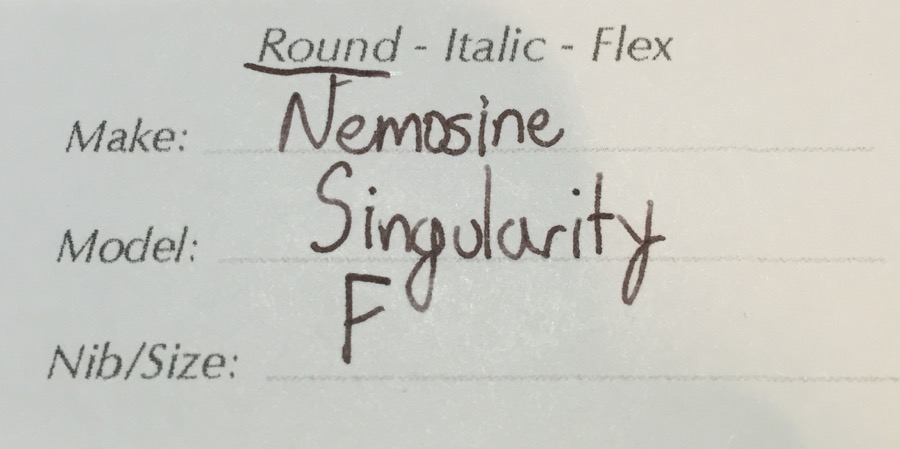 Round - Italic - Flex
Make: Nemosine
Model: Singularity
Nib/Size: F